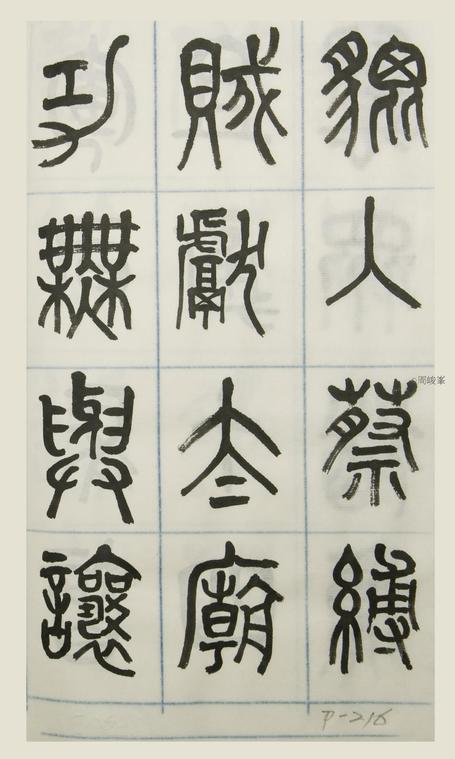 貔入蔡縛
賊獻太廟
功無與讓
周峻峯
P-216